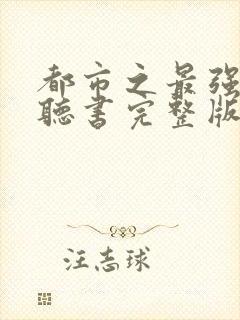 都市之最强
聽書完整版
汪志球